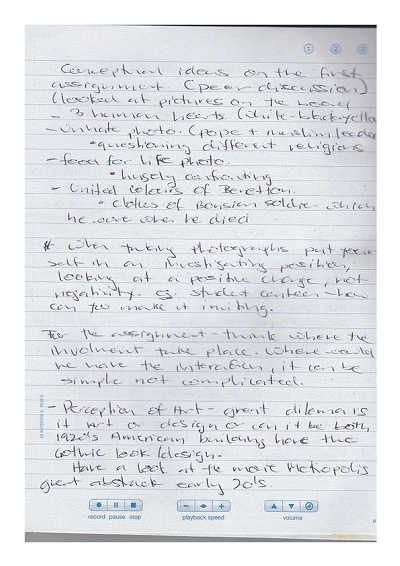 1 2 3
Conceptual ideas on the first
assignment (peer discussion)
(looked at pictures on the
- 3 human hearts. (white-black-yellow
- Unhate photo. (pope + muslim leader
• questioning different religions
- food for life photo.
• hugely confronting
- United Colours of Benetton.
• Clothes of Bonsian soldier which
he wore when he died.
* When taking photographs put your
self in an investigating position,
looking at a positive change, not
negativity. eg. student canteen - how
can you make it inviting.
For the assignment - think where the
involment take place. Where would
we have the interaction, it can be
simple not complicated.
- Perception of Art - great dilema is
it Art or design or can it be both,
1920's American building have the
Gothic look/design.
Have a look at the movie Metropolis
great abstack early 20's.
record pause stop
playback speed
volume